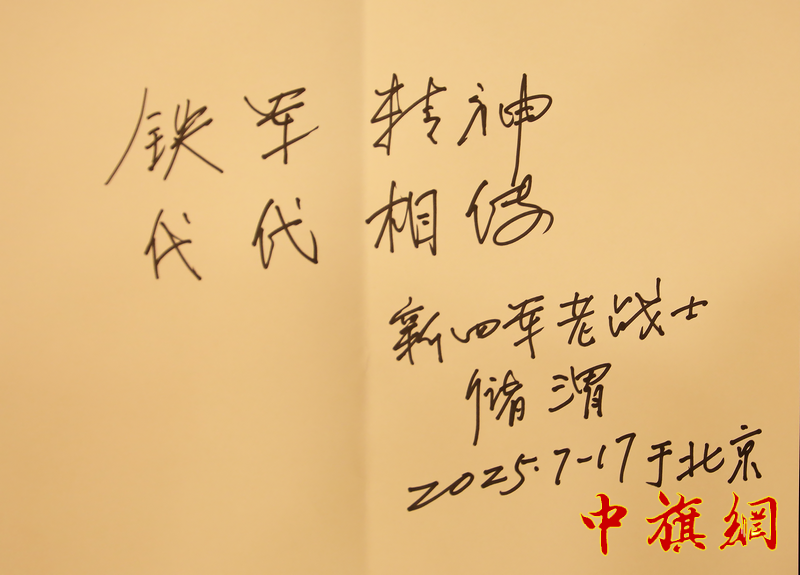 铁军精神
代代相传
新四军老战士
储渭
2025.7-17于北京
中旗網